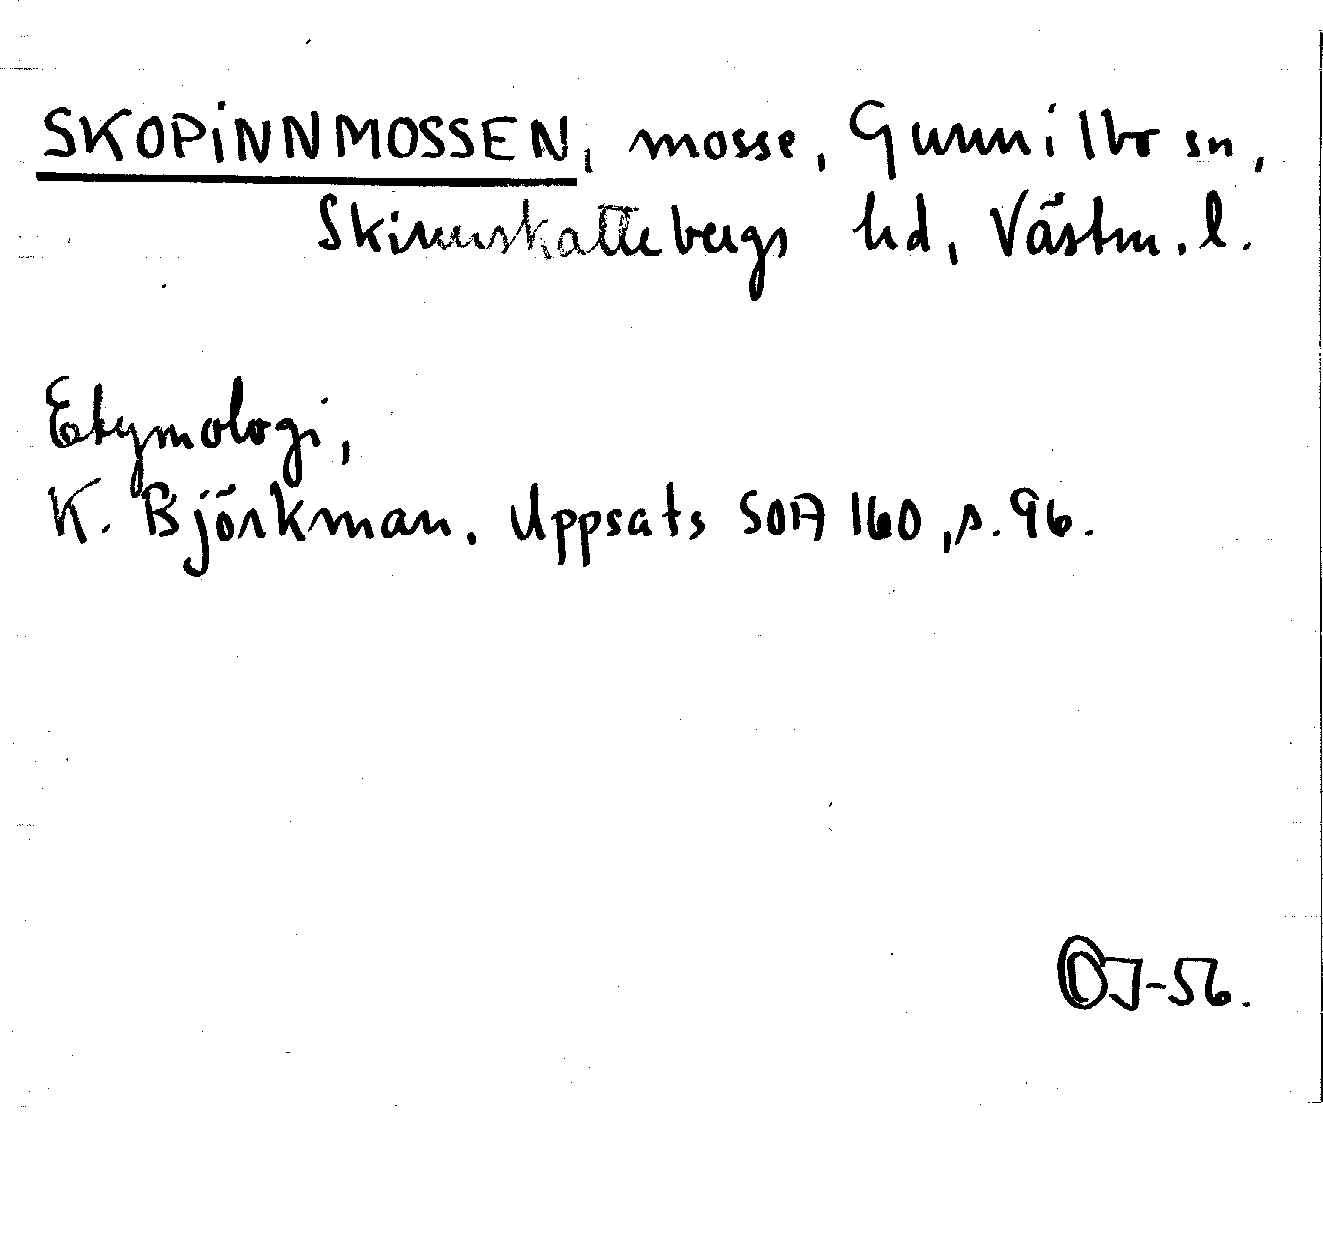 SKOPINNMOSSEN, mosse, Gunnilbo sn,
Skinnskattebergs hd, Västm. l.
Etymologi,
K. Björkman. Uppsats SOA 160, s. 96.
OJ-56.